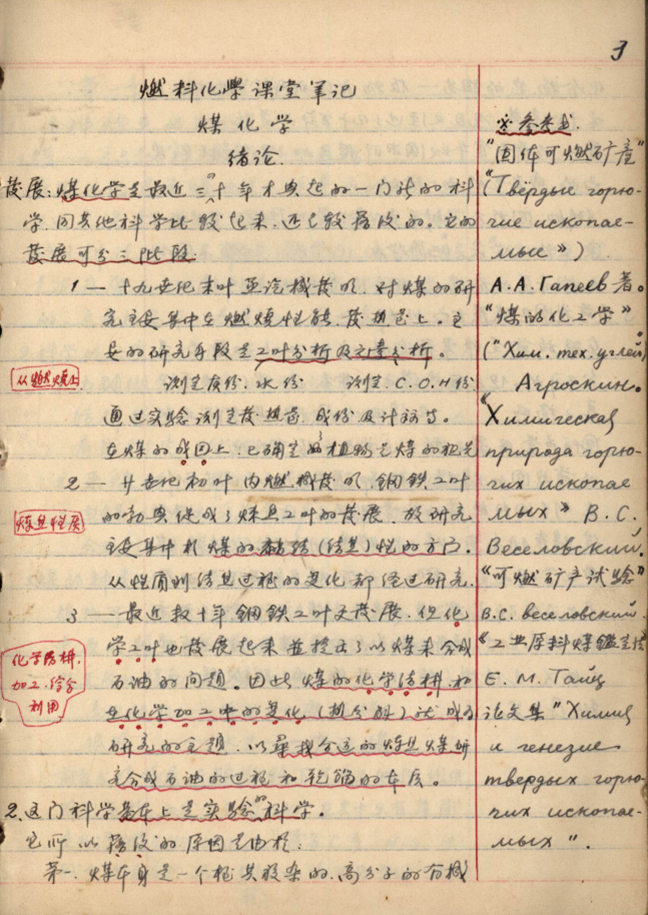 3
燃料化學课堂笔记
煤化学
绪论.
發展:煤化学是最近三四十年才兴起的一门新的科
学.同其他科学比较起来.还是较落后的.它的
發展可分三阶段.
1 — 十九世纪末叶蒸汽機發明.对煤的研
究主要集中在燃燒性能、發热量上.主
要的研究手段是工业分析及元素分析。
从燃燒上
测定灰份.水份 测定C.O.H份
通过实验测定發热量.成份及计标等.
在煤的成因上.已确定了植物是煤的祖先
2 — 廿世纪初叶内燃機發明.钢鉄工业
的勃兴促成了煉焦工业的發展.故研究
煉焦性展
主要集中於煤的黏结(结焦)性的方面.
从性质到结焦过程的变化都经过研究.
3 — 最近数十年钢鉄工业大發展.但化
学工业也發展起来並提出了以煤来合成
石油的问题。因此煤的化学结構.和
在化学加工中的变化(热分解)就成为
化学结構.
加工.综合
利用
研究的主題.以尋找合适的煉焦煤研
究合成石油的过程和的本质。
2.这门科学基本上是实验的科学。
它所以落後的原因是由於:
第一.煤本身是一个極其複杂的.高分子的有機
参考书.
"固体可燃矿產"
(Твёрдые горю-
чие ископае-
мые»)
А.А.Гапеев著。
"煤的化工学"
("Хим. тех. углей"
Агроскин。
"Химическая
природа горю-
чих ископае
мых» В.С.
Веселовский.
"可燃矿产试验"
В.С. веселовский.
«工业原料煤鑑定法
Е.М.Тайц
论文集"Химия
и генезис
твердых горю-
чих ископае-
мых".